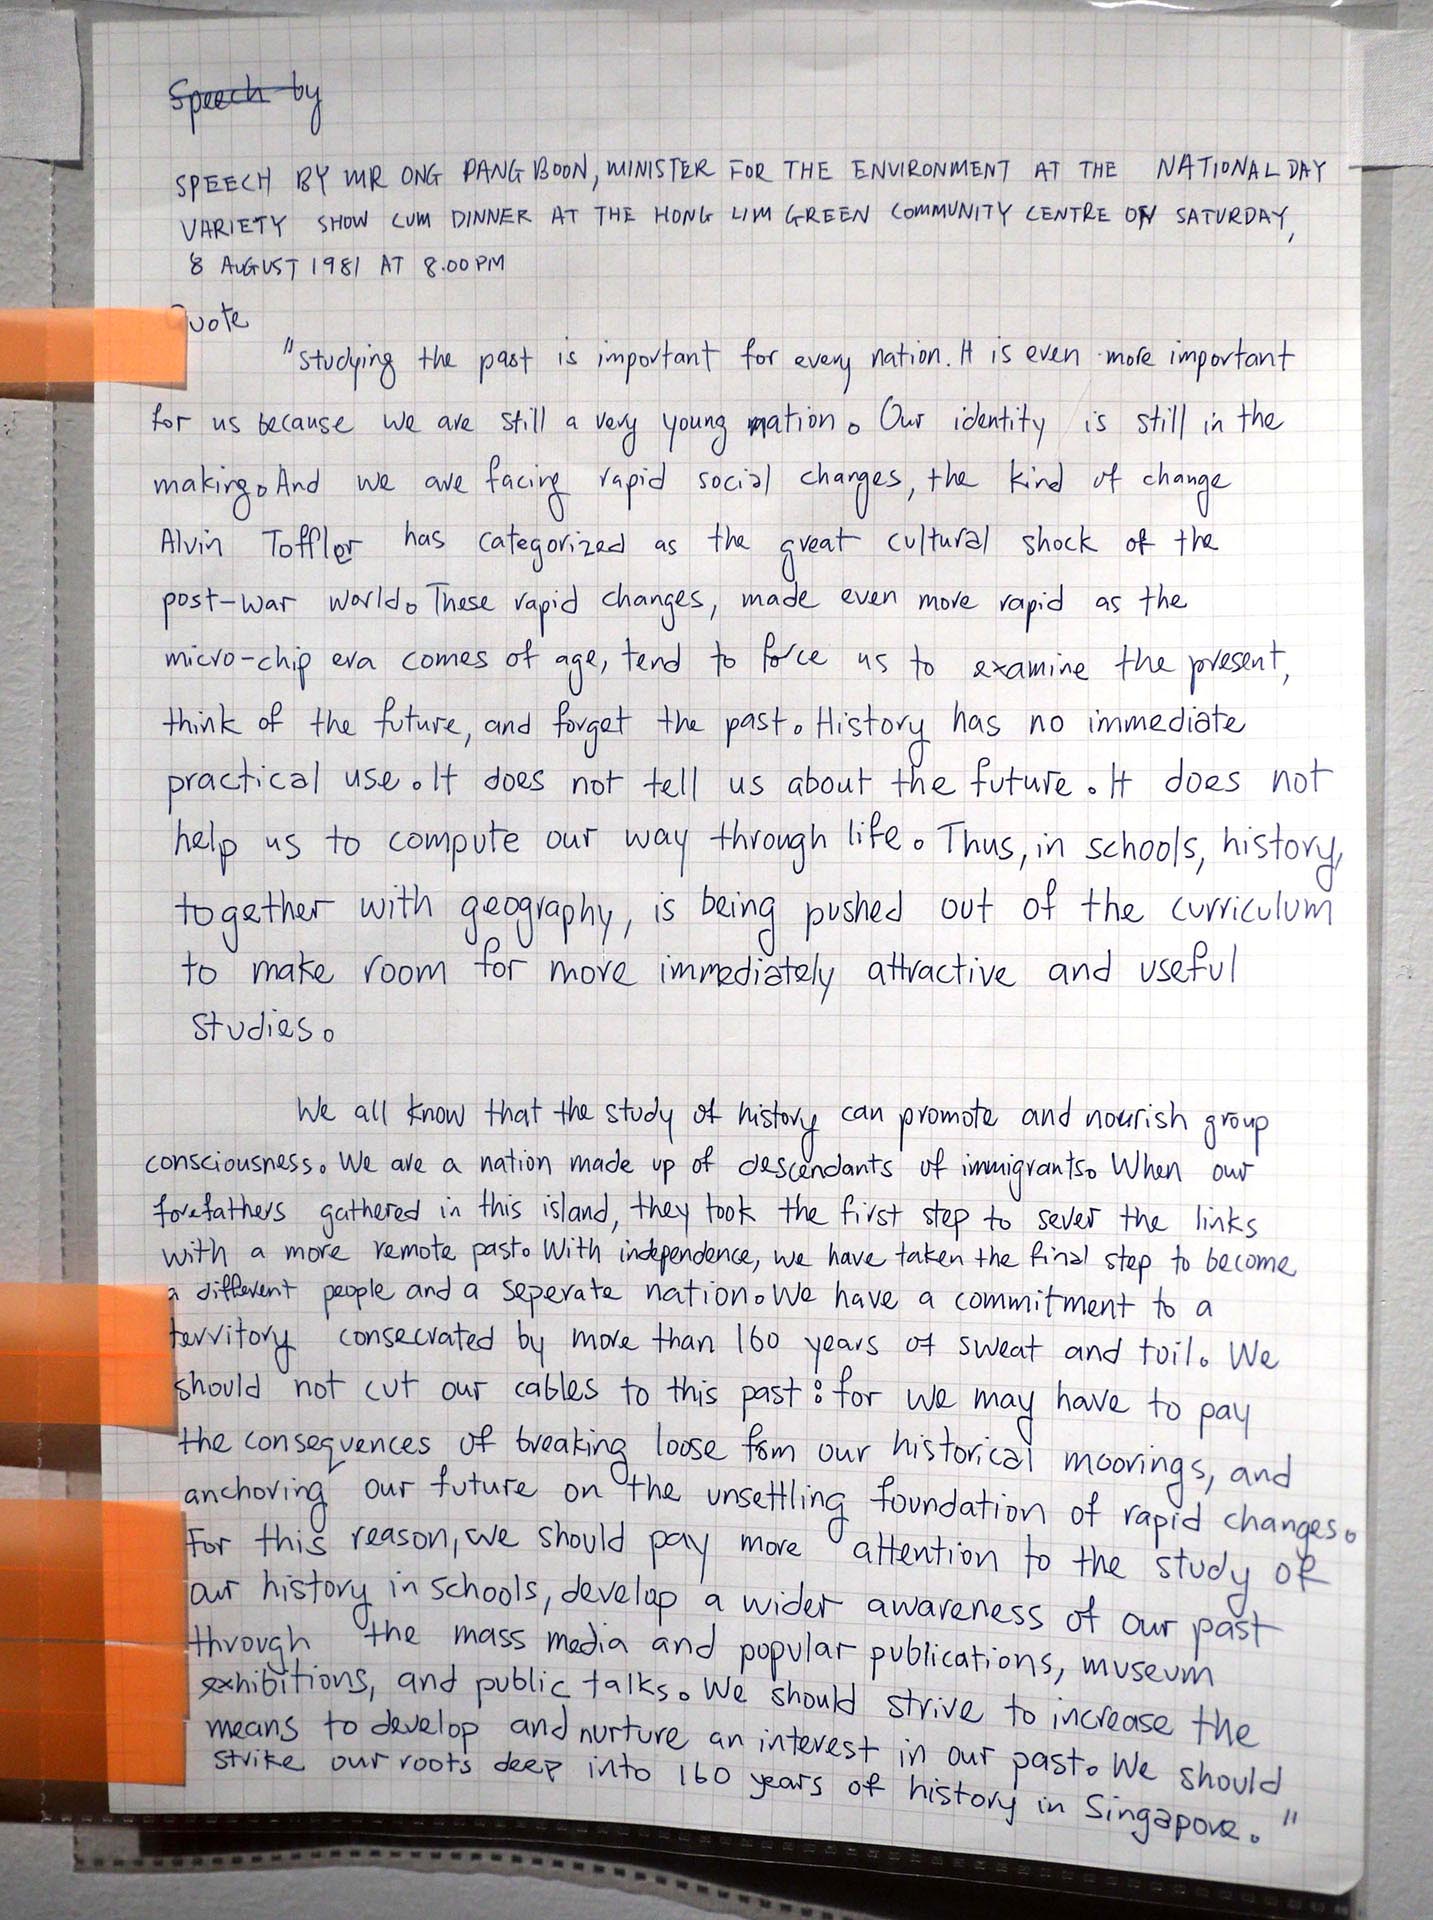 Speech by
SPEECH BY MR ONG PANG BOON, MINISTER FOR THE ENVIRONMENT AT THE NATIONAL DAY
VARIETY SHOW CUM DINNER AT THE HONG LIM GREEN COMMUNITY CENTRE ON SATURDAY,
8 AUGUST 1981 AT 8.00PM
Quote
"Studying the past is important for every nation. It is even more important
for us because we are still a very young nation. Our identity is still in the
making. And we are facing rapid social changes, the kind of change
Alvin Toffler has categorized as the great cultural shock of the
post-war world. These rapid changes, made even more rapid as the
micro-chip era comes of age, tend to force us to examine the present,
think of the future, and forget the past. History has no immediate
practical use. It does not tell us about the future. It does not
help us to compute our way through life. Thus, in schools, history,
together with geography, is being pushed out of the curriculum
to make room for more immediately attractive and useful
studies.
We all know that the study of history can promote and nourish group
consciousness. We are a nation made up of descendants of immigrants. When our
forefathers gathered in this island, they took the first step to sever the links
with a more remote past. With independence, we have taken the final step to become
a different people and a seperate nation. We have a commitment to a
territory consecrated by more than 160 years of sweat and toil. We
should not cut our cables to this past: for we may have to pay
the consequences of breaking loose fom our historical moorings, and
anchoring our future on the unsettling foundation of rapid changes.
For this reason, we should pay more attention to the study of
our history in schools, develop a wider awareness of our past
through the mass media and popular publications, museum
exhibitions, and public talks. We should strive to increase the
means to develop and nurture an interest in our past. We should
strike our roots deep into 160 years of history in Singapore."